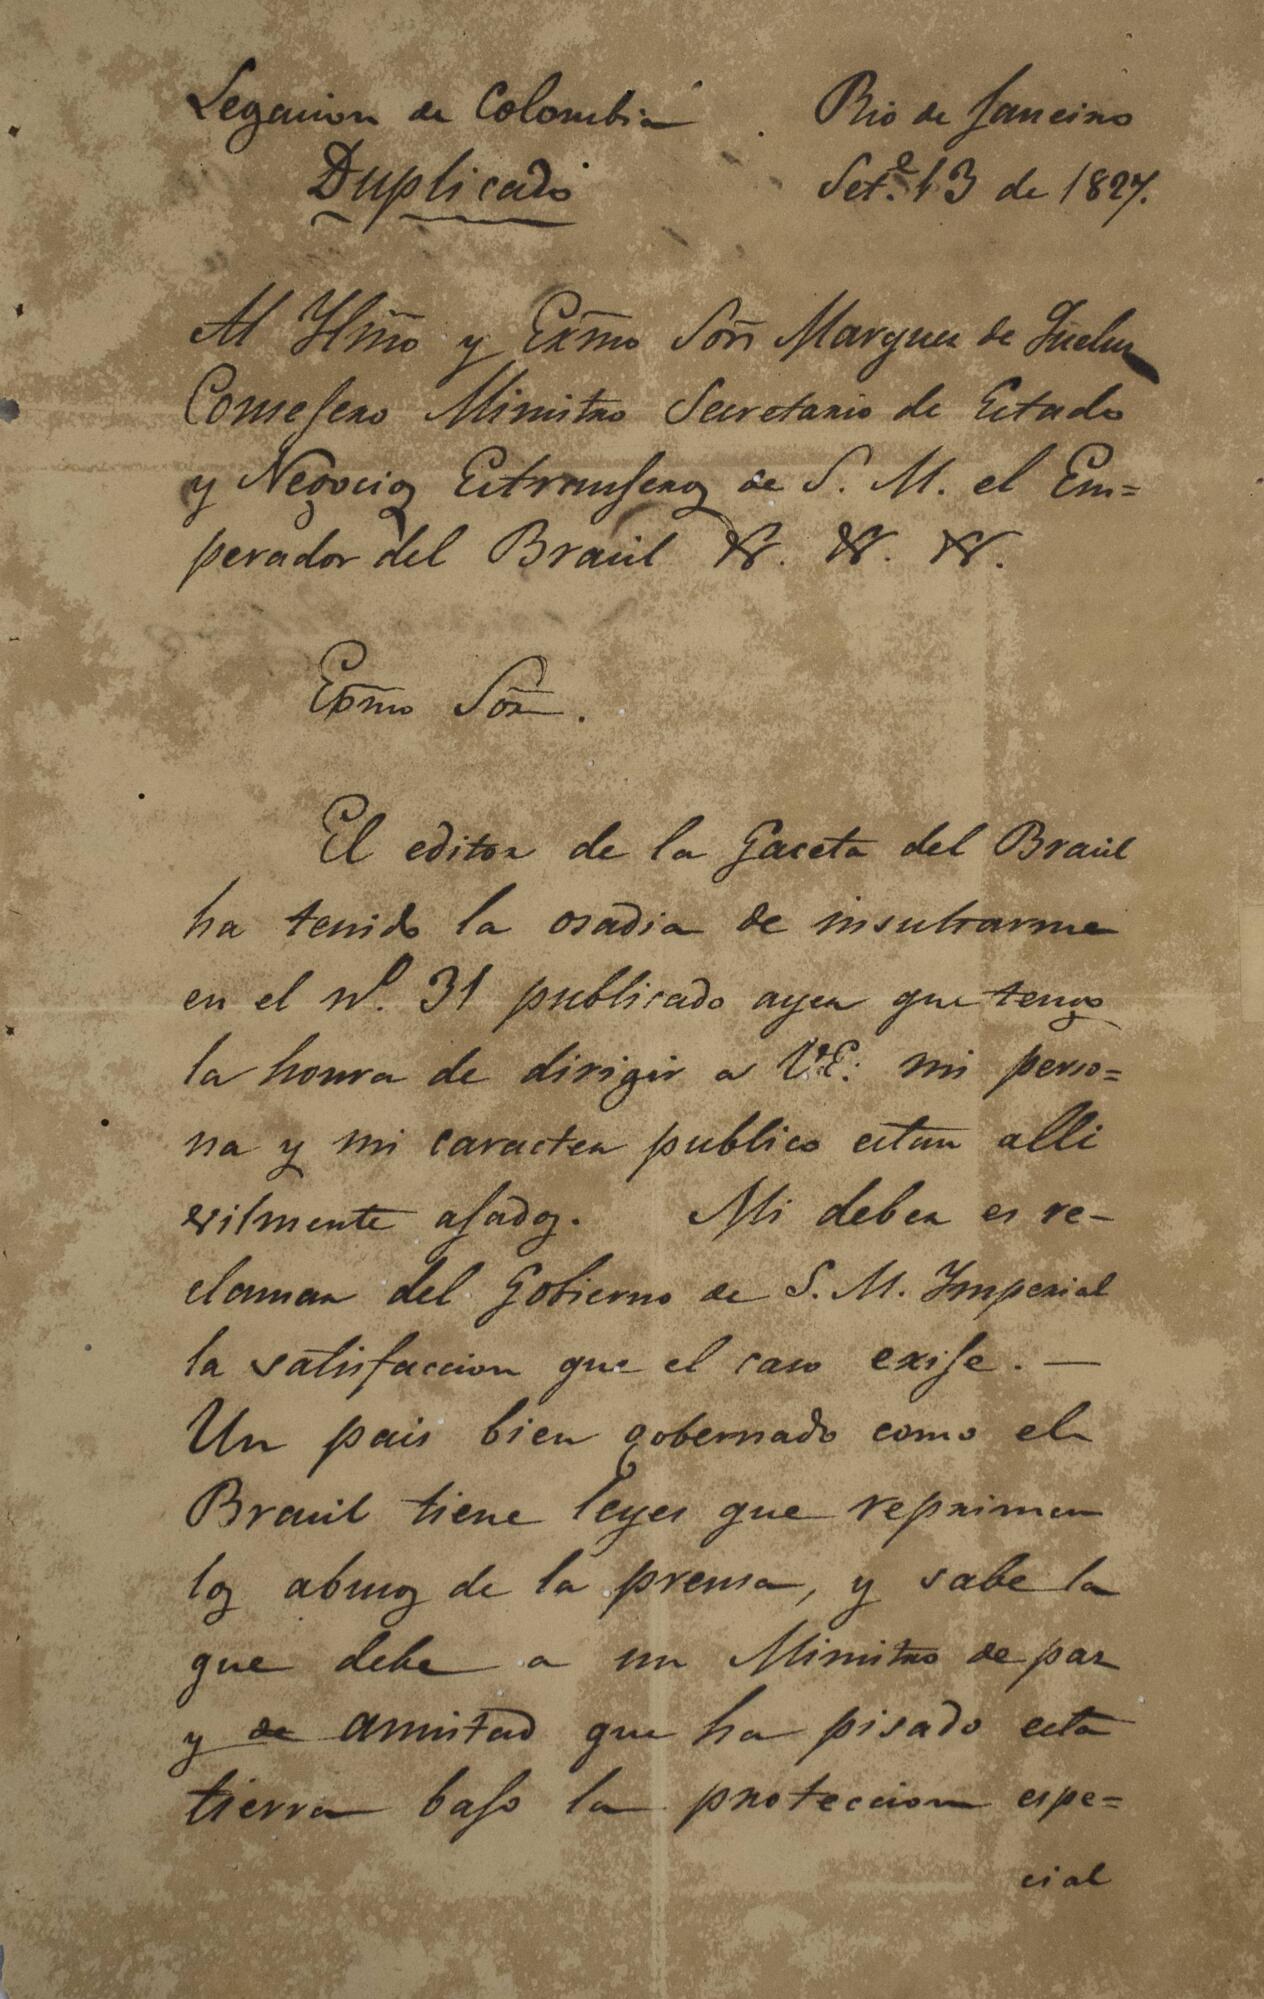 Legacion de Colombia Rio de Janeiro
Duplicado Set.e 13 de 1827.
Al Illmõ y Exmõ Sõr Marques de Queluz
Consejero Ministro Secretario de Estado
y Negocios Estranjeros de S. M. el Em=
perador del Brasil &. &. &.
Exmõ Sõr.
El editor de la Gaceta del Brasil
ha tenido la osadia de insultarme
en el nº. 31 publicado ayer que tengo
la honra de dirigir a V.E. mi perso=
na y mi caracter publico estan alli
vilmente ajados. Mi deber es re-
clamar del Gobierno de S. M. Imperial
la satisfaccion que el caso exije. —
Un pais bien gobernado como el
Brasil tiene leyes que reprimen
los abusos de la prensa, y sabe la
que debe a un Ministro de paz
y de amistad que ha pisado esta
tierra bajo la proteccion espe=
cial